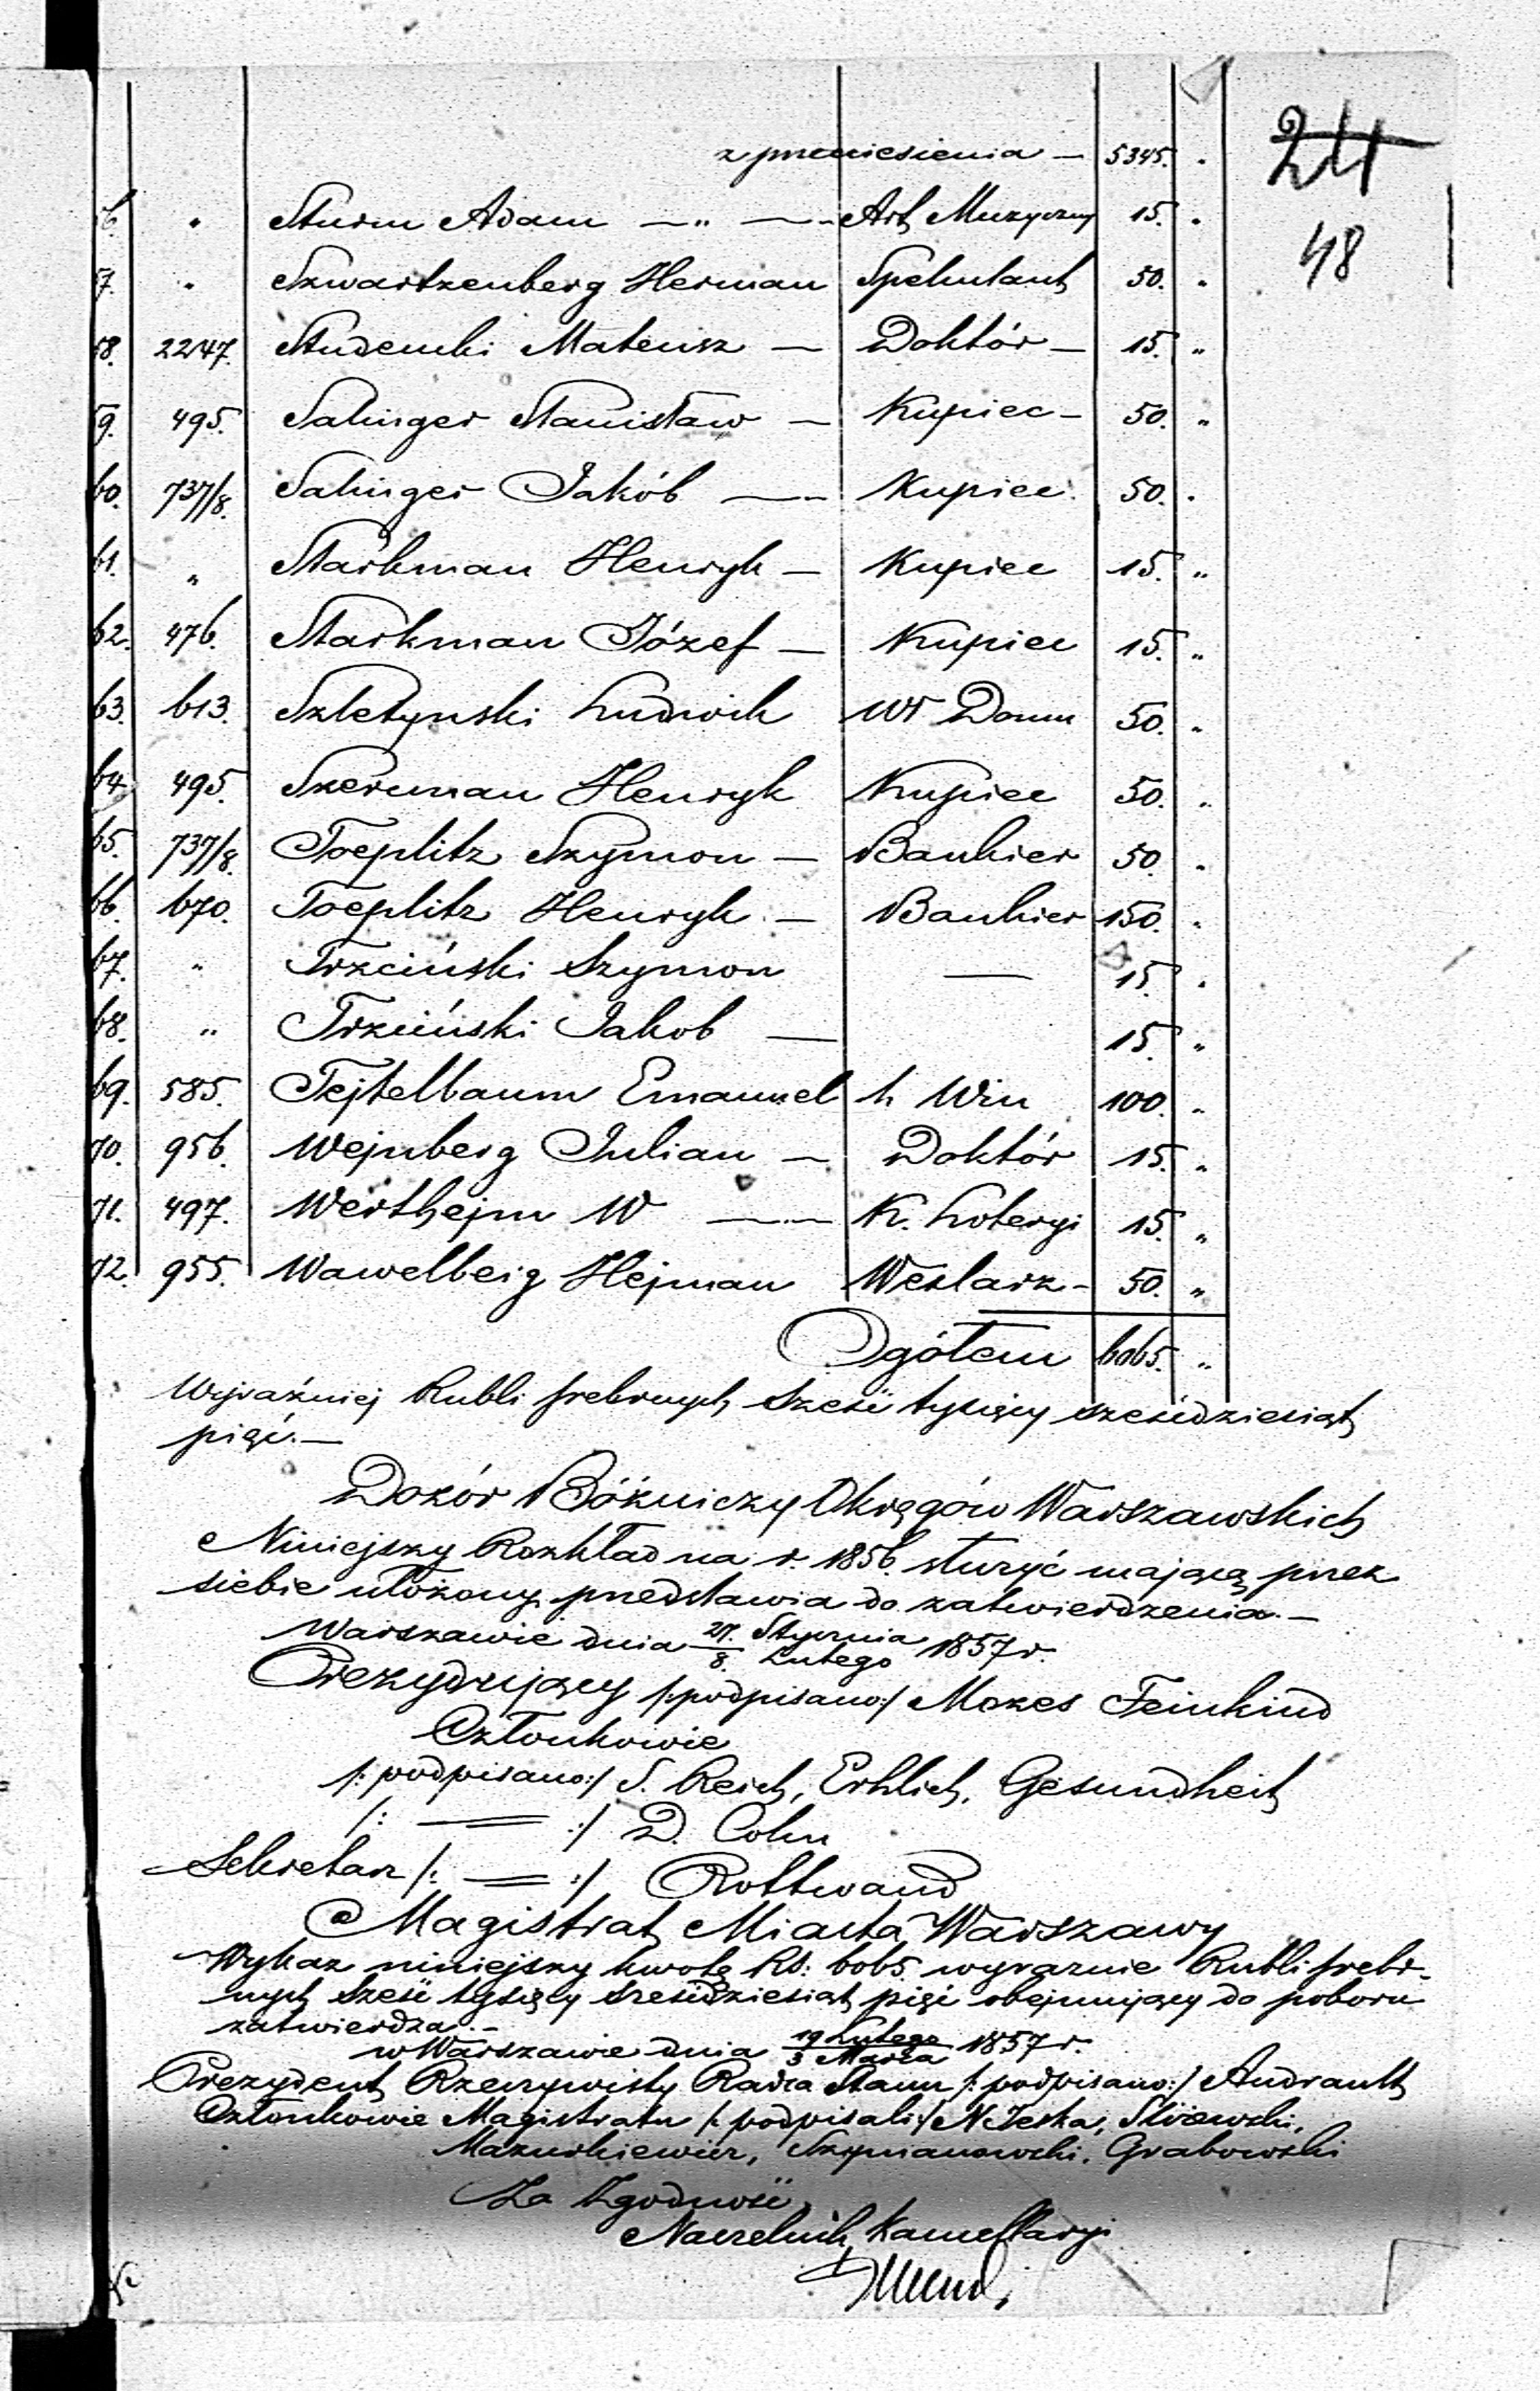 z przeniesienia — 5345. "
24
48
56. " Sturm Adam —"— Art Muzyczny 15. "
57. " Szwartzenberg Herman Spekulant 50. "
58. 2247. Studencki Mateusz — Doktór — 15. "
59. 495. Salinger Stanisław — Kupiec — 50. "
60. 737/8. Salinger Jakób — Kupiec. 50. "
61. " Starkman Henryk — Kupiec 15. "
62. 476. Starkman Józef — Kupiec 15. "
63. 613. Szletyński Ludwik Wł Domu 50. "
64. 495. Szerman Henryk Kupiec 50. "
65. 737/8. Toeplitz Szymon — Bankier 50. "
66. 670. Toeplitz Henryk — Bankier 150. "
67. " Trzciński Szymon — 15. "
68. " Trzciński Jakob — 15. "
69. 585. Tejtelbaum Emanuel h Win 100. "
70. 956. Wejnberg Julian — Doktór 15. "
71. 497. Werthejm W — K. Loteryi 15. "
72. 955. Wawelberg Hejman Wexlarz — 50. "
Ogółem 6065. "
Wyraźniej Rubli srebrnych sześć tysięcy sześćdziesiąt
pięć. —
Dozór Bóżniczy Okręgów Warszawskich
Niniejszy Rozkład na r. 1856. służyć mającą przez
siebie ułożony przedstawia do zatwierdzenia. —
Warszawie dnia 27. Stycznia / 8. Lutego 1857 r.
Prezydujący /:podpisano:/ Mozes Feinkind
Członkowie
/:podpisano:/ S. Reich, Erhlich, Gesundheit
/: = :/ D. Cohn
Sekretarz /: = :/ Rottwand
Magistrat Miasta Warszawy
Wykaz niniejszy kwotę Rs: 6065 wyraznie Rubli srebr-
nych sześć tysięcy sześćdziesiąt pięć obejmujący do poboru
zatwierdza. —
w Warszawie dnia 19 Lutego / 3 Marca 1857 r.
Prezydent Rzeczywisty Radca Stanu /:podpisano:/ Andrault
Członkowie Magistratu /:podpisali:/ N. Teska,
Mazurkiewicz, Szymanowski, Grabowski
Za Zgodność
Naczelnik Kancellaryi